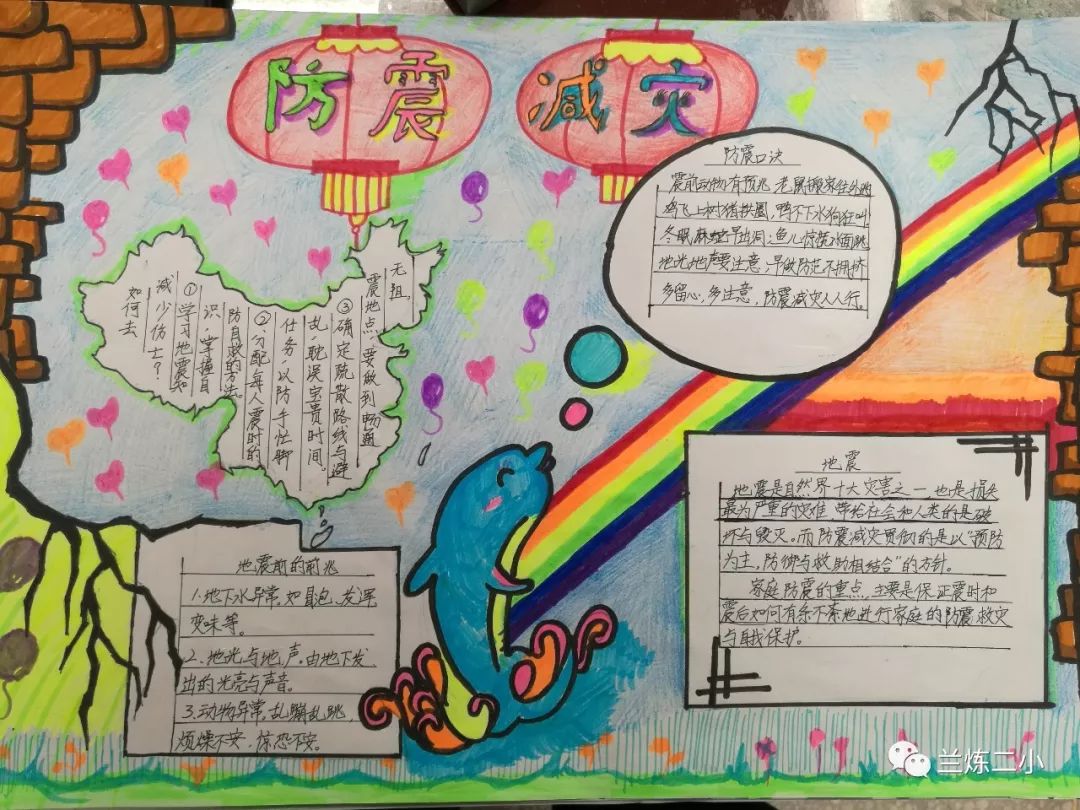 防震减灾
防震口诀
震前动物有预兆,老鼠搬家往外逃
鸡飞上树猪拱圈,鸭不下水狗狂叫
冬眠麻蛇早出洞,鱼儿惊慌水面跳
地光地声要注意,早做防范不拥挤
多留心,多注意,防震减灾人人行。
如何去
减少伤亡?
①学习地震知
识,掌握自
防自救的方法。
②分配每人震时的
任务,以防手忙脚
乱,耽误宝贵时间。
③确定疏散路线与避
震地点,要做到畅通
无阻。
地震
地震是自然界十大灾害之一也是损失
最为严重的灾难,带给社会和人类的是破
坏与毁灭。而防震减灾贯彻的是以“预防
为主,防御与救助相结合”的方针。
家庭防震的重点,主要是保证震时和
震后如何有条不紊地进行家庭的防震救灾
与自我保护。
地震前的前兆
1.地下水异常,如冒泡、发浑
变味等。
2.地光与地声。由地下发
出的光亮与声音。
3.动物异常,乱蹦乱跳,
烦燥不安,惊恐不安。
兰炼二小